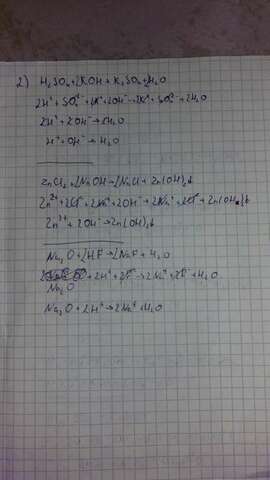 2) H₂SO₄+2KOH→K₂SO₄+2H₂O
2H⁺+SO₄²⁻+2K⁺+2OH⁻→2K⁺+SO₄²⁻+2H₂O
2H⁺+2OH⁻→2H₂O
H⁺+OH⁻→H₂O
ZnCl₂+2NaOH→2NaCl+Zn(OH)₂↓
Zn²⁺+2Cl⁻+2Na⁺+2OH⁻→2Na⁺+2Cl⁻+Zn(OH)₂↓
Zn²⁺+2OH⁻→Zn(OH)₂↓
Na₂O+2HF→2NaF+H₂O
+2H⁺+2F⁻→2Na⁺+2F⁻+H₂O
Na₂O
Na₂O+2H⁺→2Na⁺+H₂O